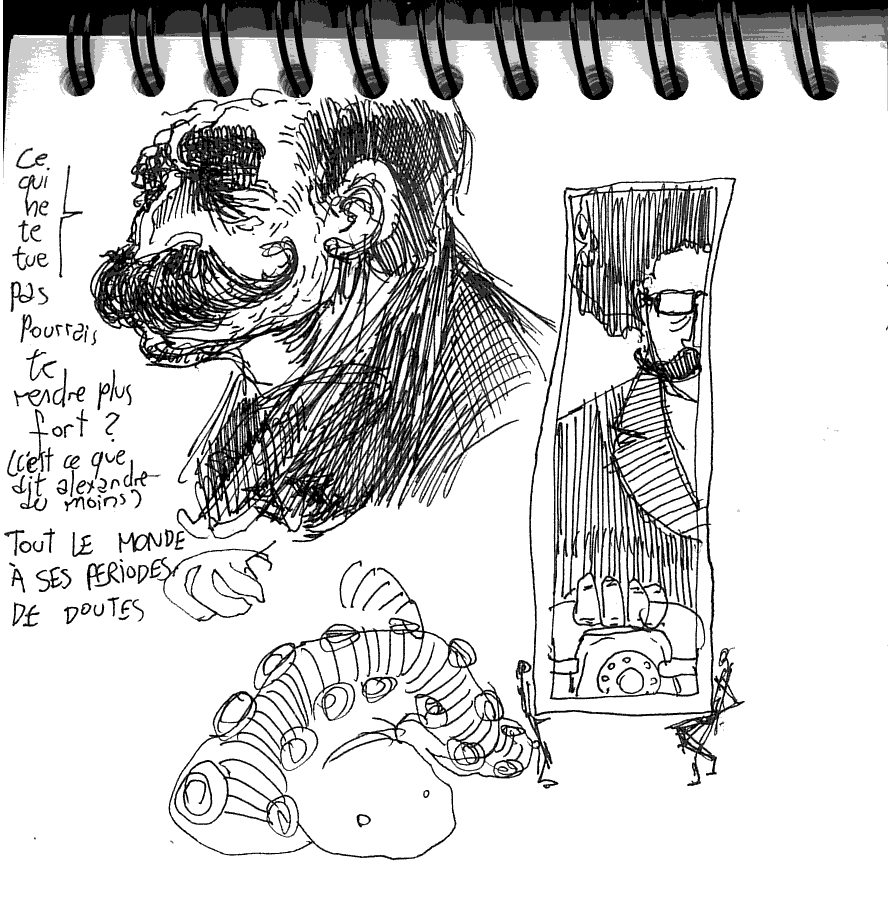 Ce
qui
ne
te
tue
pas
Pourrais
te
rendre plus
fort ?
(c'est ce que
dit alexandre
du moins)
TOUT LE MONDE
À SES PERIODES
DE DOUTES